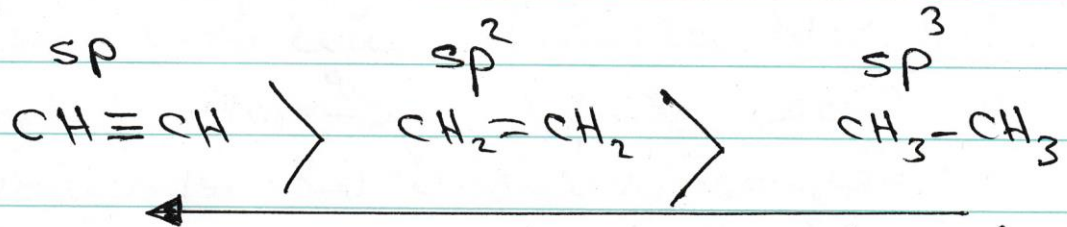 sp sp² sp³
CH≡CH > CH₂=CH₂ > CH₃-CH₃